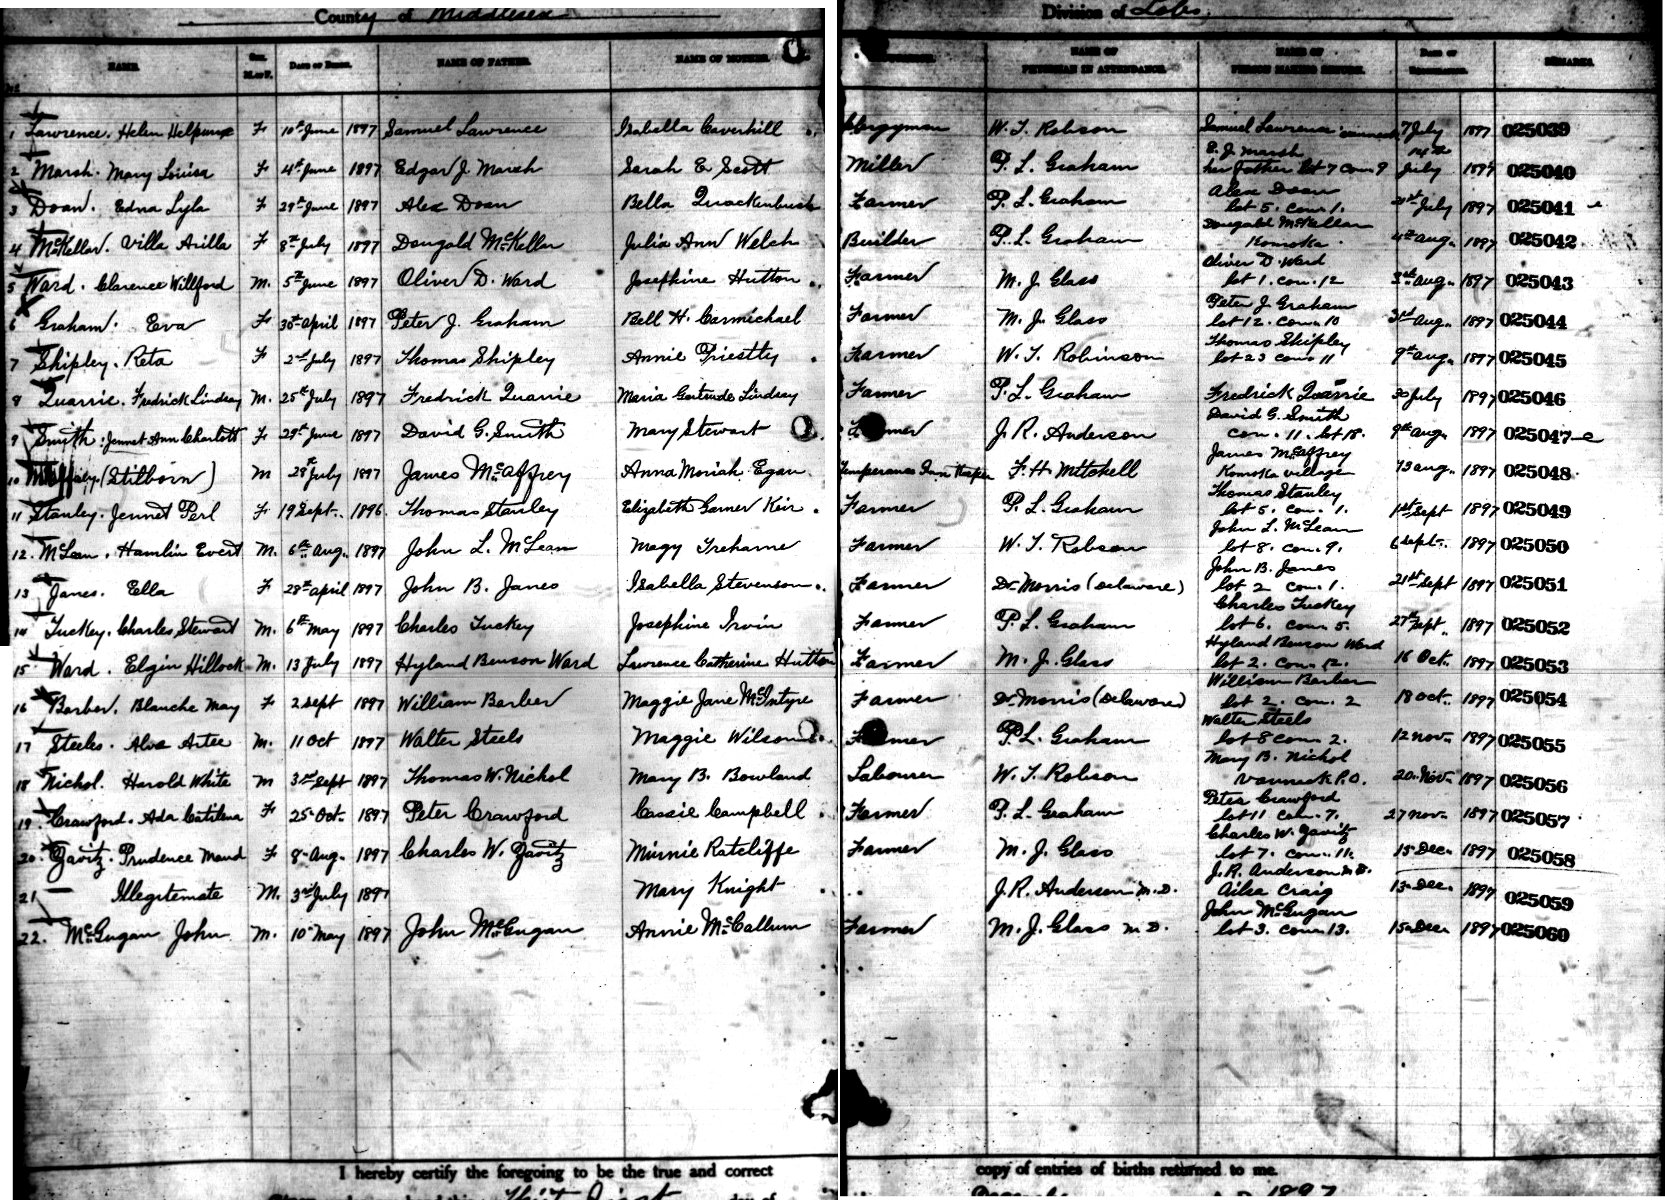 County of Middlesex Division of Lobo
NAME. SEX. M. or F. DATE OF BIRTH. NAME OF FATHER. NAME OF MOTHER. NAME OF PHYSICIAN IN ATTENDANCE. NAME OF PERSON MAKING RETURN. DATE OF REGISTRATION. REMARKS.
1 Lawrence. Helen F 10th June 1897 Samuel Lawrence Isabella Caverhill Clergyman W. T. Robson Samuel Lawrence 7 July 1897 025039
2 Marsh. Mary Louisa F 4th June 1897 Edgar J Marsh Sarah E Scott Miller P. L. Graham E. J. Marsh her father lot 7 con 9 14th July 1897 025040
3 Doan. Edna Lyla F 29th June 1897 Alex Doan Bella Quackenbush Farmer P. L. Graham Alex Doan lot 5. con. 1. July 1897 025041
4 McKellar. Villa Arilla F 8th July 1897 Dougald McKellar Julia Ann Welch Builder P. L. Graham Dougald McKellar Komoka. 4th Aug. 1897 025042
5 Ward. Clarence Willford M. 5th June 1897 Oliver D. Ward Josephine Hutton Farmer M. J. Glass Oliver D. Ward lot 1. con. 12 3rd Aug. 1897 025043
6 Graham. Eva F 30th April 1897 Peter J. Graham Bell H. Carmichael Farmer M. J. Glass Peter J Graham lot 12. con. 10 Aug. 1897 025044
7 Shipley. Reta F 2nd July 1897 Thomas Shipley Annie Priestly Farmer W. T. Robinson Thomas Shipley lot 23 con 11 9th Aug. 1897 025045
8 Quarrie. Fredrick Lindsay M. 25th July 1897 Fredrick Quarrie Maria Gertrude Lindsay Farmer P. L. Graham Fredrick Quarrie 30 July 1897 025046
9 Smith. Jennet Ann Charlott F 29th June 1897 David G. Smith Mary Stewart Farmer J. R. Anderson David G. Smith con. 11. lot 18. 9th Aug. 1897 025047
10 (Stilborn) M 28th July 1897 James McCaffrey Anna Moriah Egan Temperance Inn Keeper F. H. Mitchell James McCaffrey Komoka village 13 Aug. 1897 025048
11 Stanley. Jennet Perl F 19 Sept. 1896. Thomas Stanley Elizabeth Garner Keir Farmer P. L. Graham Thomas Stanley lot 5. con. 1. 1st Sept 1897 025049
12. McLean. Hamlin Evert M. 6th Aug. 1897 John L. McLean Magy Treharne Farmer W. T. Robson John L. McLean lot 8. con. 9. 6 Sept. 1897 025050
13 Janes. Ella F 28th April 1897 John B. Janes Isabella Stevenson Farmer Dr. Morris (Delaware) John B. Janes lot 2 con. 1. 21st Sept 1897 025051
14 Tuckey. Charles Stewart M. 6th May 1897 Charles Tuckey Josephine Irvin Farmer P. L. Graham Charles Tuckey lot 6. con. 5. 27th Sept. 1897 025052
15 Ward. Elgin Hillock M. 13 July 1897 Hyland Benson Ward Lawrence Catherine Hutton Farmer M. J. Glass Hyland Benson Ward lot 2. con. 12. 16 Oct. 1897 025053
16 Barber. Blanche May F 2 Sept 1897 William Barber Maggie Jane McIntyre Farmer Dr. Morris (Delaware) William Barber lot 2. con. 2 18 Oct. 1897 025054
17 Steels. Alva Artee M. 11 Oct 1897 Walter Steels Maggie Wilson Farmer P. L. Graham Walter Steels lot 8 con 2. 12 Nov. 1897 025055
18 Nichol. Harold White M 3rd Sept 1897 Thomas W. Nichol Mary B. Bowland Labourer W. T. Robson Mary B. Nichol Vanneck P.O. 20 Nov. 1897 025056
19. Crawford. Ada Catilena F 25 Oct. 1897 Peter Crawford Cassie Campbell Farmer P. L. Graham Peter Crawford lot 11 con. 7. 27 Nov. 1897 025057
20. Zavitz. Prudence Maud F 8 Aug. 1897 Charles W. Zavitz Minnie Ratcliffe Farmer M. J. Glass Charles W. Zavitz lot 7. con. 11. 15 Dec. 1897 025058
21 Illegitemate M. 3rd July 1897 Mary Knight J. R. Anderson M.D. J. R. Anderson M.D. Ailsa Craig 13 Dec. 1897 025059
22. McGugan John M. 10 May 1897 John McGugan Annie McCallum Farmer M. J. Glass M.D. John McGugan lot 3. con. 13. 15 Dec 1897 025060
I hereby certify the foregoing to be the true and correct copy of entries of births returned to me.
1897